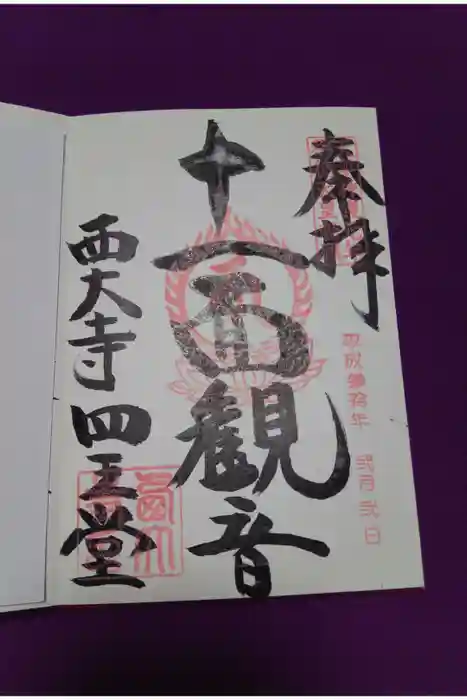 奉拝
平成参拾年 弐月弐日
十一面観音
西大寺四王堂